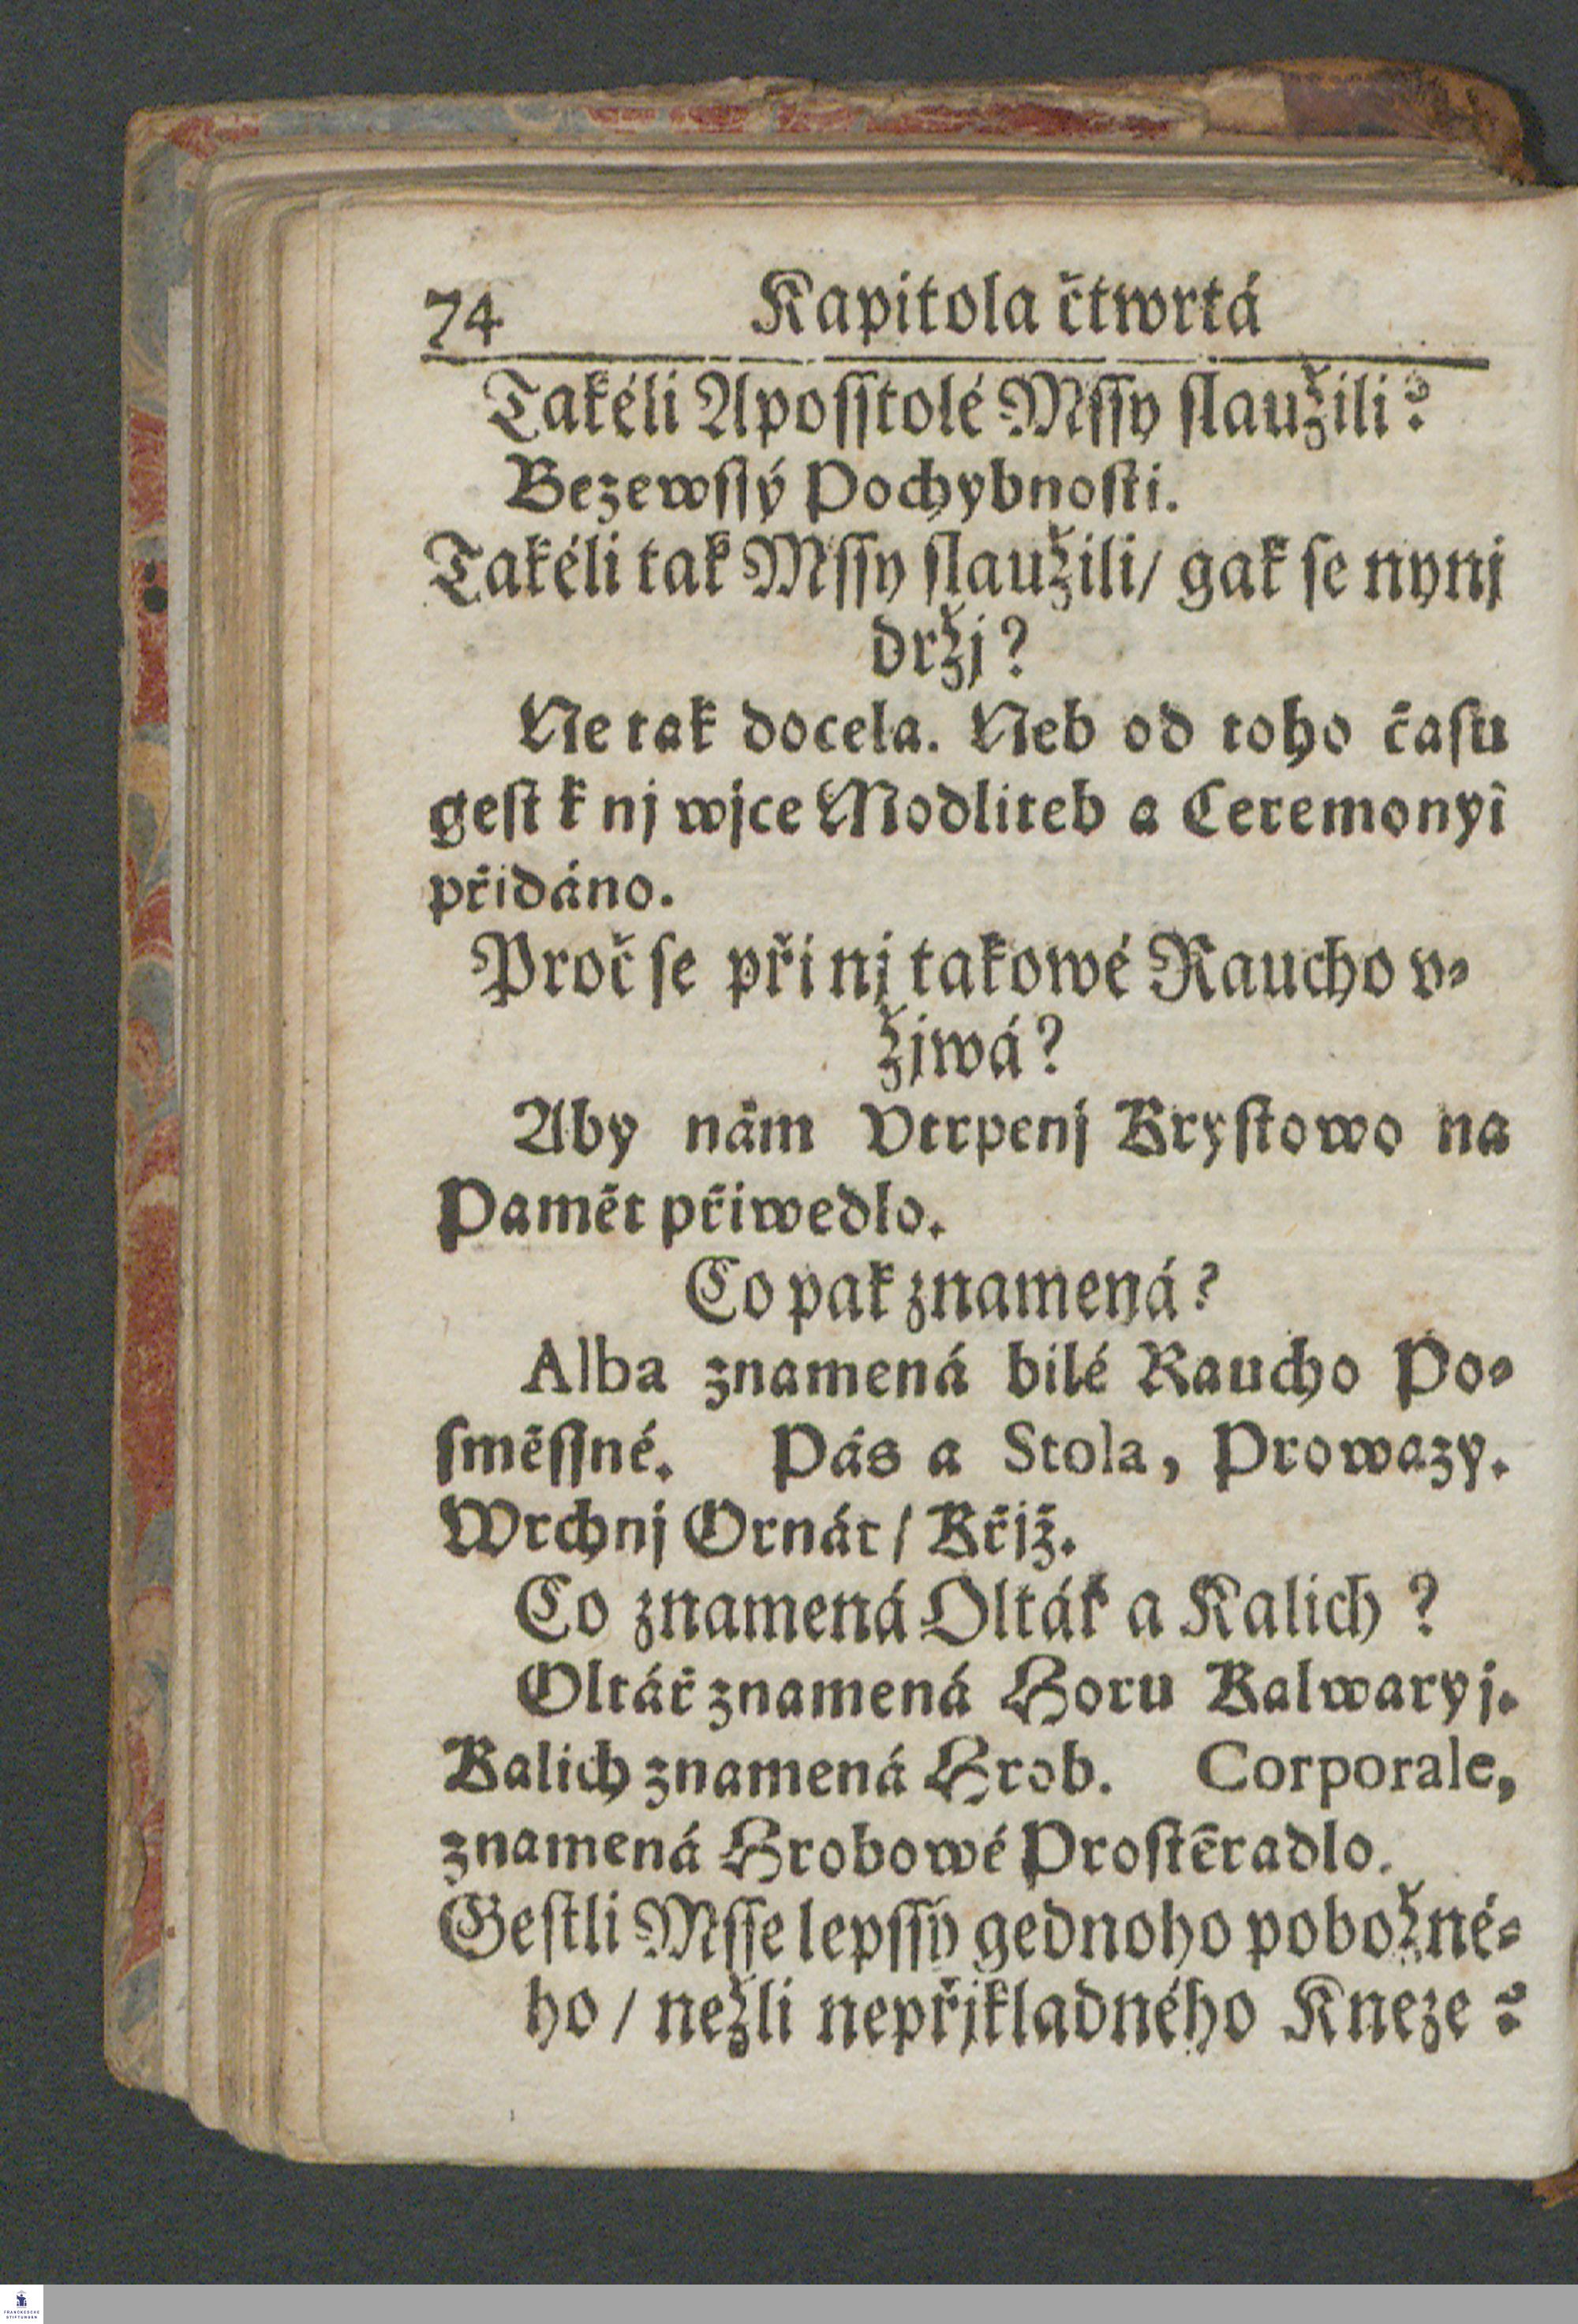 74 Kapitola čtwrtá
Takéli Apoſſtolé Mſſy ſlaužili?
Bezewſſý Pochybnoſti.
Takéli tak Mſſy ſlaužili/ gak ſe nynj
držj?
Ne tak docela. Neb od toho čaſu
geſt k nj wjce Modliteb a Ceremonyî
přidáno.
Proč ſe při nj takowé Raucho v⸗
žjwá?
Aby nám Vtrpenj Kryſtowo na
Pamět přiwedlo.
Co pak znamená?
Alba znamená bilé Raucho Po⸗
ſměſſné. Pás a Stola, Prowazy.
Wrchnj Ornát/ Křjž.
Co znamená Oltář a Kalich?
Oltář znamená Horu Kalwaryj.
Kalich znamená Hrob. Corporale,
znamená Hrobowé Proſtěradlo.
Geſtli Mſſe lepſſý gednoho pobožné⸗
ho/ nežli nepřjkladného Kneze?
FRANCKESCHE
STIFTUNGEN